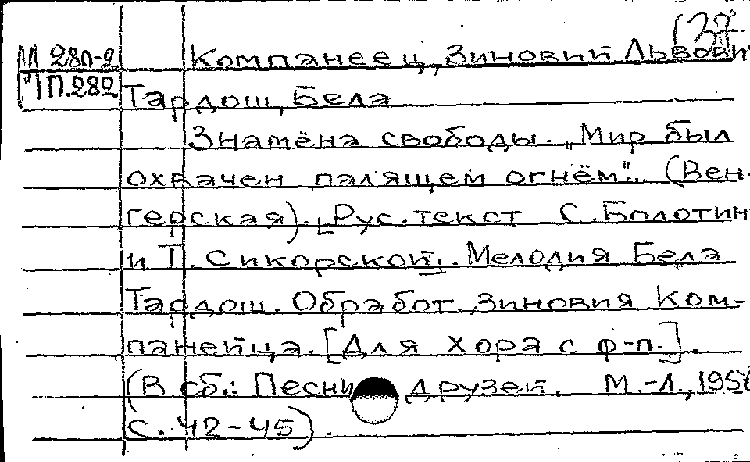 (32
М 280-2 Компанеец, Зиновий Львови
П.282 Тардош, Бела
Знамёна свободы. „Мир был
охвачен палящем огнём". (Вен-
герская). [Рус. текст С. Болотин
и Т. Сикорской]. Мелодия Бела
Тардош. Обработ. Зиновия Ком-
панейца. [Для хора с ф-п.].
(В сб.: Песни друзей. М.-Л., 195
с. 42-45).